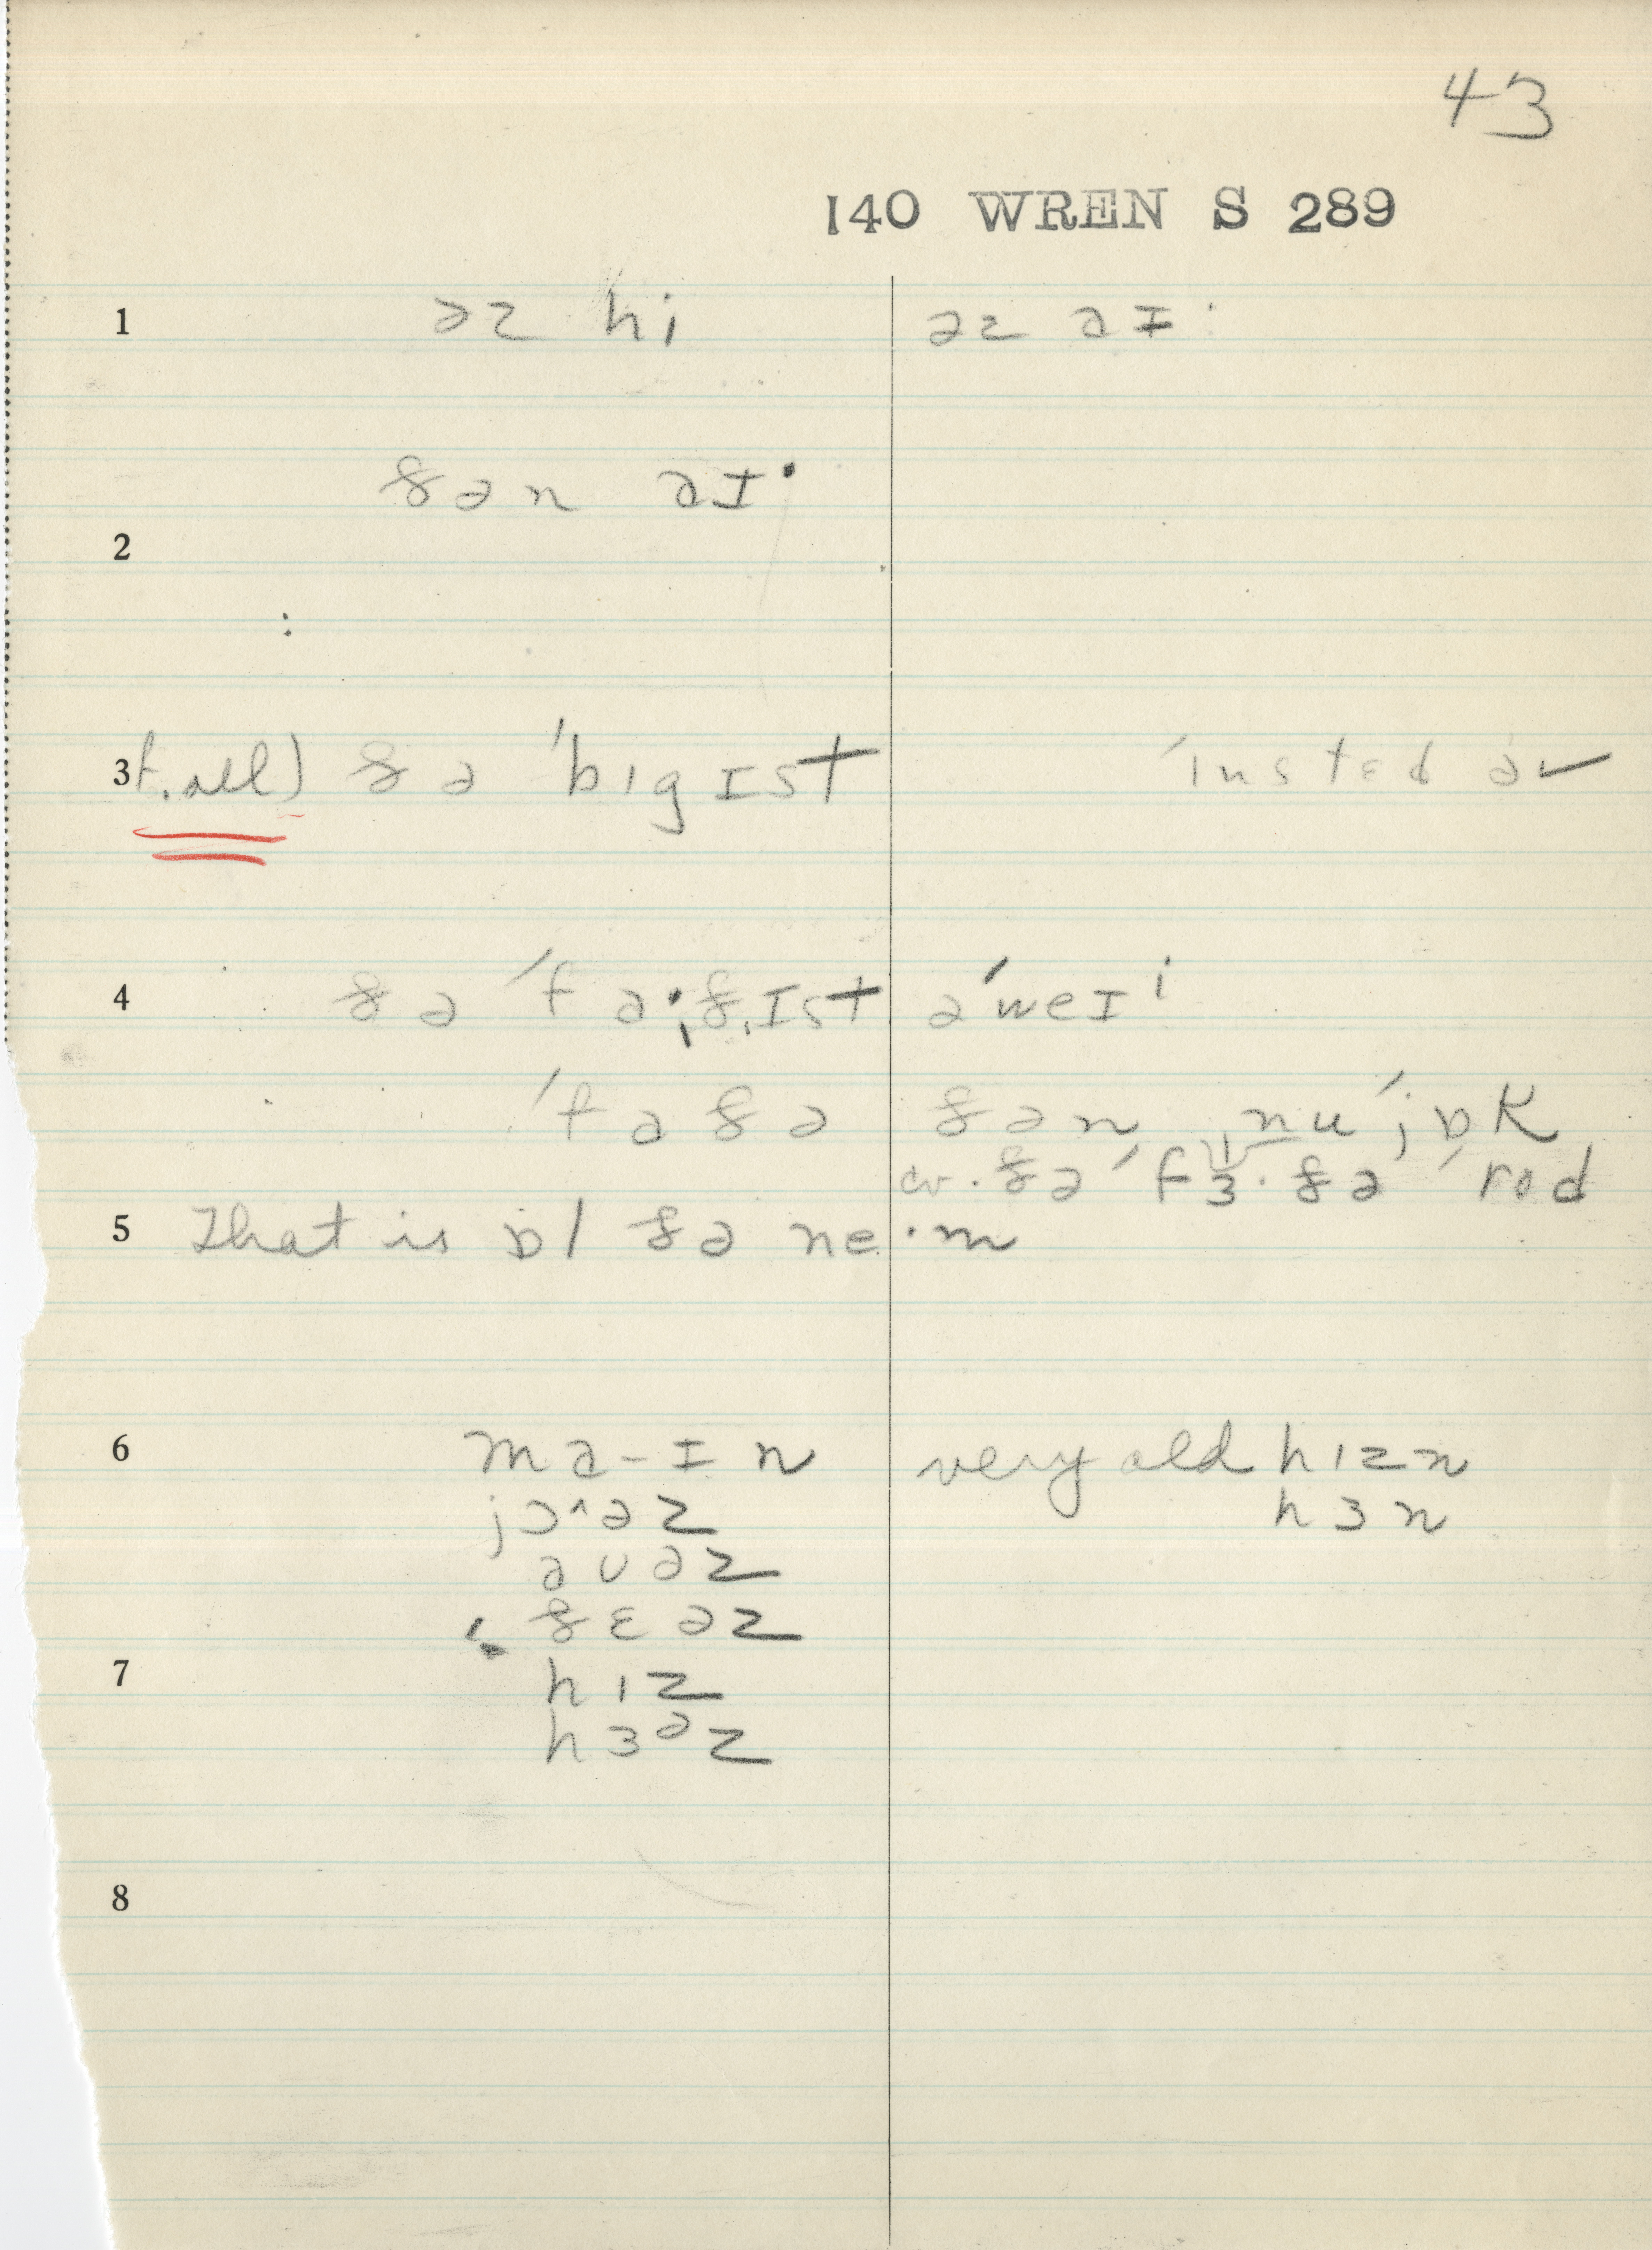 43
140 WREN S 289
1 əz hi əz aɪ·
ðən aɪ·
2
3 t. all) ðə ˈbigɪst ˈinsted əv
4 ðə ˈfa·ðɪst əˈweɪ
ˈfaðə ðən nuˈjɒk
ðə ˈfɜ·ðə ˈrod
5 That is ɒl ðə ne·m
6 ma-ɪn very old hizn
jɔ^əz hɜn
aʊəz
ðɛəz
7 hiz
hɜəz
8